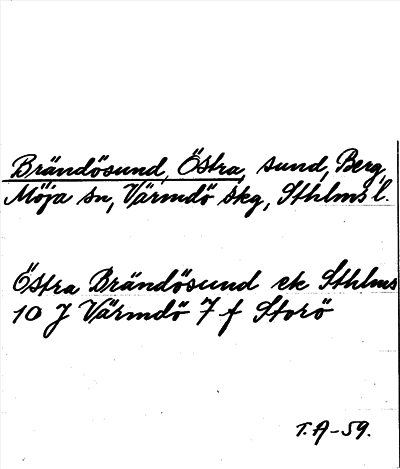 Brändösund, Östra, sund, Berg,
Möja sn, Värmdö skg, Sthlms l.
Östra Brändösund ek Sthlms
10 J Värmdö 7 f Storö
T.A-59.